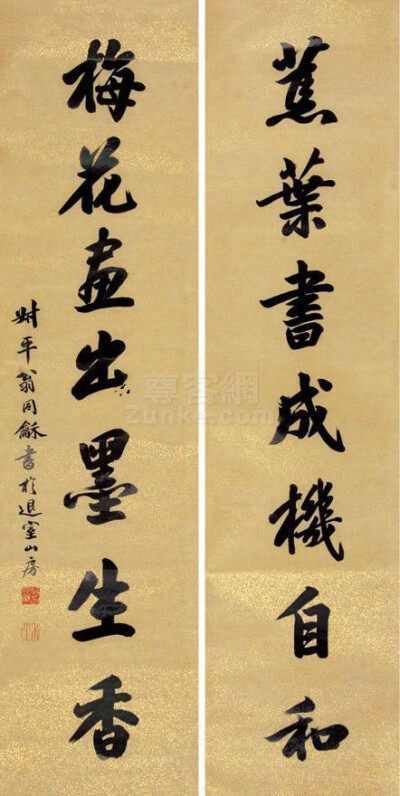 蕉葉書成機自和
梅花畫出墨生香
叔平翁同龢書於退室山房
尊客網
Zunke.com